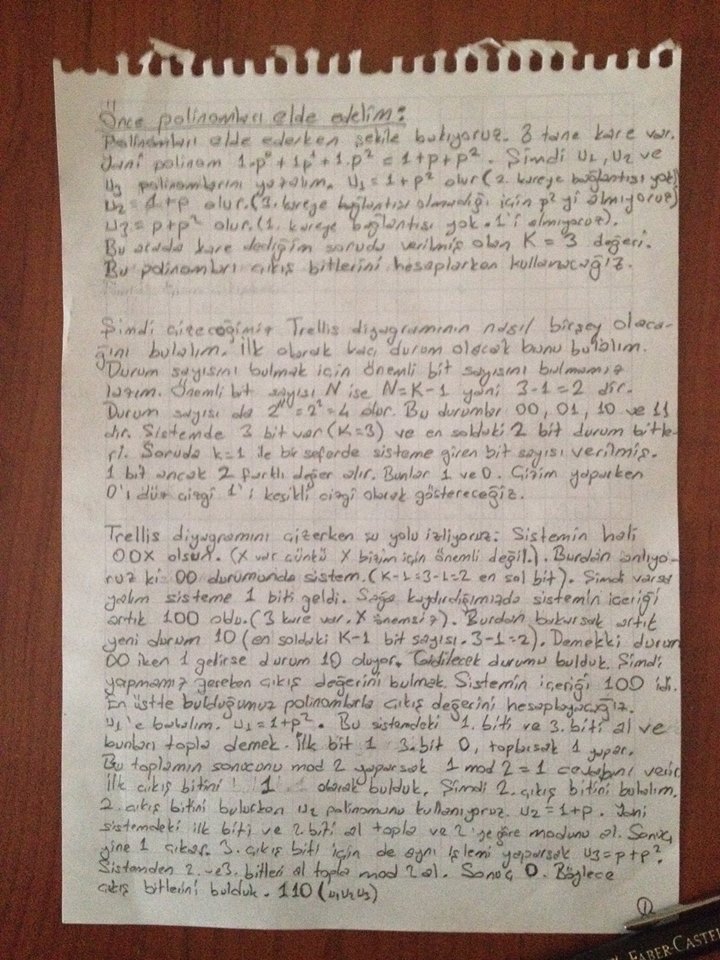 Önce polinomları elde edelim:
Polinomları elde ederken şekile bakıyoruz. 3 tane kare var.
Yani polinom 1.p⁰+1p¹+1.p² = 1+p+p². Şimdi u1, u2 ve
u3 polinomlarını yazalım. u1 = 1+p² olur (2. kareye bağlantısı yok)
u2 = 1+p olur. (3. kareye bağlantısı olmadığı için p² yi almıyoruz)
u3 = p+p² olur. (1. kareye bağlantısı yok. 1'i almıyoruz).
Bu arada kare dediğim soruda verilmiş olan K = 3 değeri.
Bu polinomları çıkış bitlerini hesaplarken kullanacağız.
Şimdi çizeceğimiz Trellis diyagramının nasıl birşey olaca-
ğını bulalım. İlk olarak kaç durum olacak bunu bulalım.
Durum sayısını bulmak için önemli bit sayısını bulmamız
lazım. Önemli bit sayısı N ise N=K-1 yani 3-1=2 dir.
Durum sayısı da 2ᴺ=2²=4 olur. Bu durumlar 00, 01, 10 ve 11
dir. Sistemde 3 bit var (K=3) ve en soldaki 2 bit durum bitle-
ri. Soruda k=1 ile bir seferde sisteme giren bit sayısı verilmiş.
1 bit ancak 2 farklı değer alır. Bunlar 1 ve 0. Çizim yaparken
0'ı düz çizgi 1'i kesikli çizgi olarak göstereceğiz.
Trellis diyagramını çizerken şu yolu izliyoruz: Sistemin hali
00X olsun. (X var çünkü X bizim için önemli değil.). Burdan anlıyo-
ruz ki 00 durumunda sistem. (K-1=3-1=2 en sol bit). Şimdi varsa
yalım sisteme 1 biti geldi. Sağa kaydırdığımızda sistemin içeriği
artık 100 oldu. (3 kare var. X önemsiz). Burdan bakarsak artık
yeni durum 10 (en soldaki K-1 bit sayısı. 3-1=2). Demekki durum
00 iken 1 gelirse durum 10 oluyor. Gidilecek durumu bulduk. Şimdi
yapmamız gereken çıkış değerini bulmak. Sistemin içeriği 100 idi.
En üstte bulduğumuz polinomlarla çıkış değerini hesaplayacağız.
u1'e bakalım. u1=1+p². Bu sistemdeki 1. biti ve 3. biti al ve
bunları topla demek. İlk bit 1 3. bit 0, toplarsak 1 yapar.
Bu toplamın sonucunu mod 2 yaparsak 1 mod 2 = 1 cevabını verir
İlk çıkış bitini 1 olarak bulduk. Şimdi 2. çıkış bitini bulalım.
2. çıkış bitini bulurken u2 polinomunu kullanıyoruz. u2=1+p. Yani
sistemdeki ilk biti ve 2. biti al topla ve 2'ye göre modunu al. Sonuç
yine 1 çıkar. 3. çıkış biti için de aynı işlemi yaparsak u3=p+p².
Sistemden 2. ve 3. bitleri al topla mod 2 al. Sonuç 0. Böylece
çıkış bitlerini bulduk. 110 (u1u2u3)
1
FABER-CASTEL